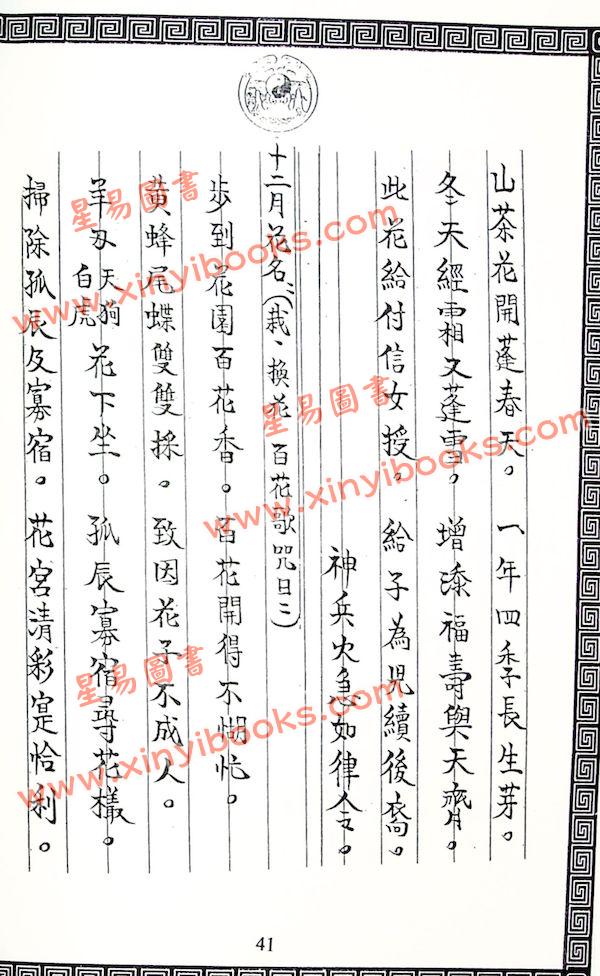 山茶花開蓬春天。一年四季長生芽。
冬天經霜又蓬雪。增添福壽與天齊。
此花給付信女授。給子為児續後裔。
神兵火急如律令。
十二月花名：(栽、換花 百花歌咒曰：)
步到花園百花香。百花開得不惆忙。
黃蜂尾蝶雙雙採。致因花子不成人。
羊刃天狗白虎花下坐。孤辰寡宿尋花樣。
掃除孤辰及寡宿。花宮清彩定恰利。
41
星易圖書
www.xinyibooks.com
星易圖書
www.xinyibooks.com
星易圖書
www.xinyibooks.com